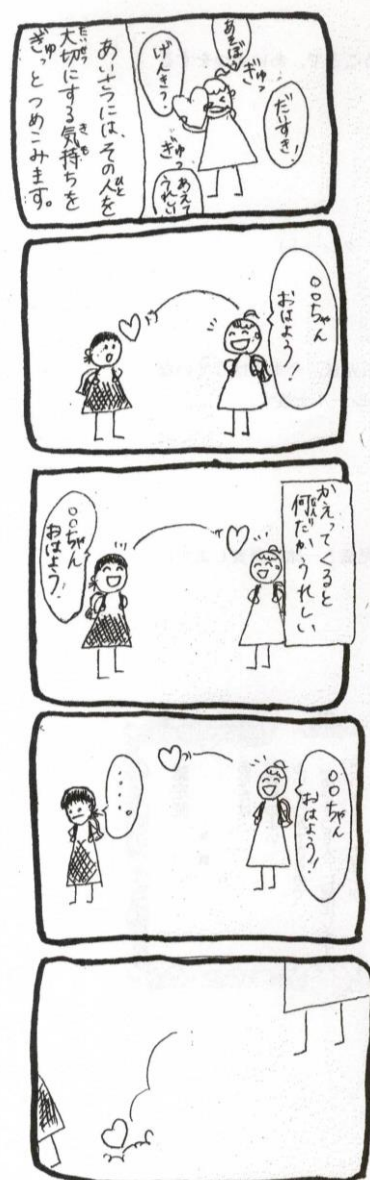 だいすき!
あそぼう
ぎゅっ
げんき?
ぎゅっ
あえて
うれしい
あいさつには、その人を
大切にする気持ちを
ぎゅっとつめこみます。
○○ちゃん
おはよう!
かえってくると
何だかうれしい
○○ちゃん
おはよう!
○○ちゃん
おはよう!
・・・・。